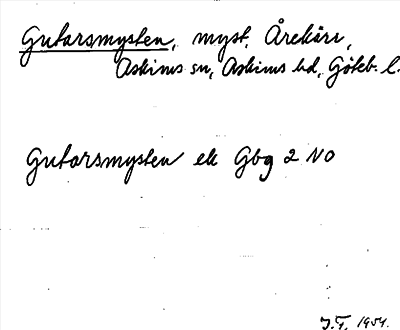 Gutarsmysten, myst, Årekärr,
Askims sn, Askims hd, Göteb. l.
Gutarsmysten ek Gbg 2 NO
J.F. 1954.